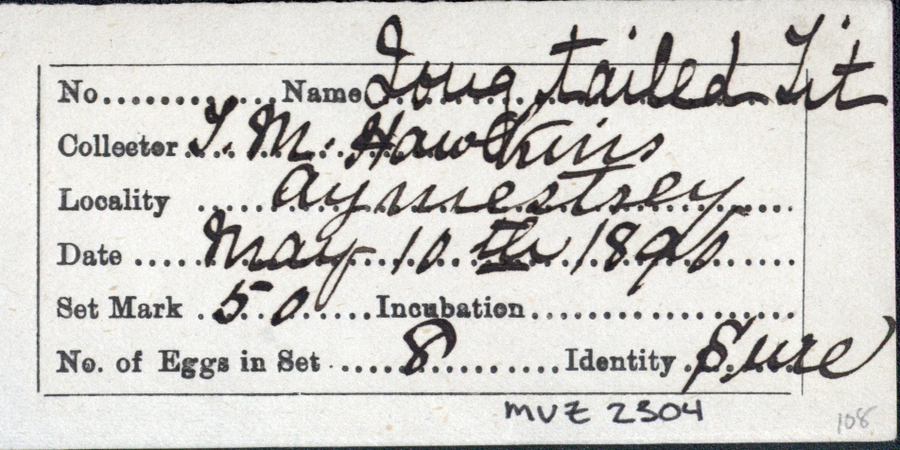 No............. Name Long tailed Tit
Collector T. M. Hawkins
Locality Aymestrey
Date May 10th
Set Mark 50 Incubation
No. of Eggs in Set 8 Identity Sure
MVZ 2304
108